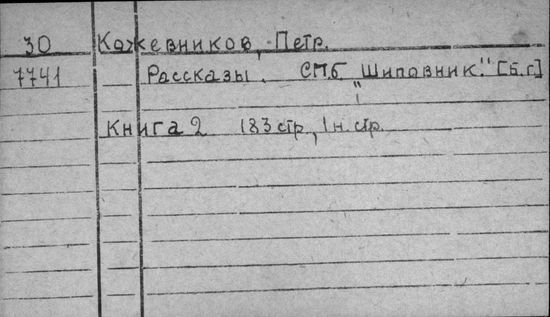 30 Кожевников, Петр.
7741 Рассказы. СПБ „Шиповник." [б.г]
Книга 2 183 стр., 1 н. стр.